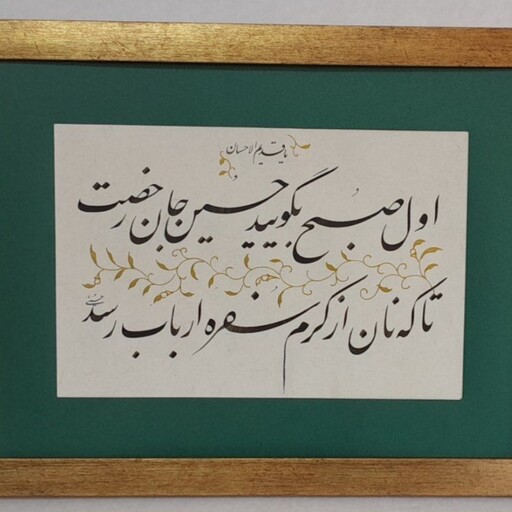 یا قدیم الاحسان
اول صبح بگویید حسین جان رخصت
تا که نان از کرم سفره ارباب رسد